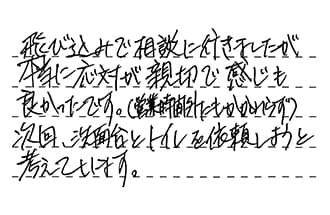 飛び込みで相談に行きましたが
本当に応対が親切で感じも
良かったです。(営業時間外にもかかわらず)
次回、洗面台とトイレを依頼しようと
考えています。